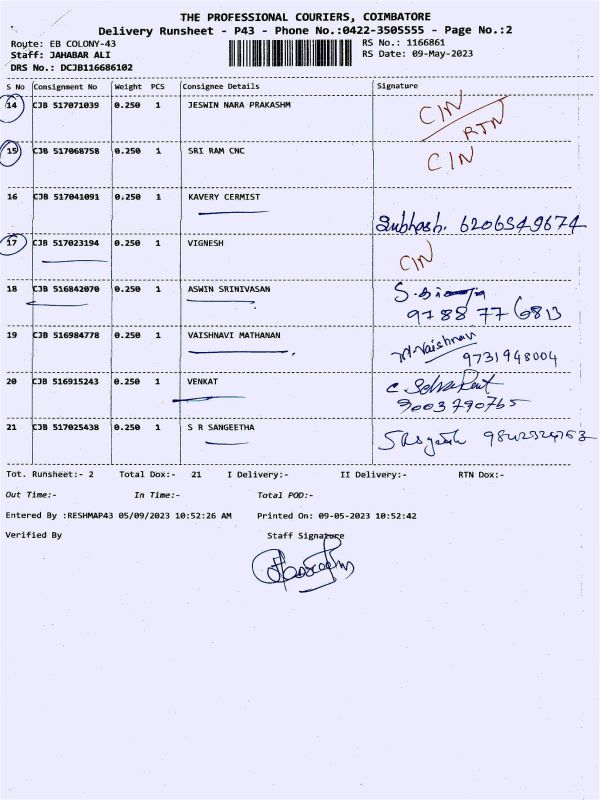 THE PROFESSIONAL COURIERS, COIMBATORE
Delivery Runsheet - P43 - Phone No.:0422-3505555 - Page No.:2
Route: EB COLONY-43 RS No.: 1166861
Staff: JAHABAR ALI RS Date: 09-May-2023
DRS No.: DCJB116686102
S No Consignment No Weight PCS Consignee Details Signature
14 CJB 517071039 0.250 1 JESWIN NARA PRAKASHM CIN
RTN
15 CJB 517068758 0.250 1 SRI RAM CNC CIN
16 CJB 517041091 0.250 1 KAVERY CERMIST
Subhash. 6206549674
17 CJB 517023194 0.250 1 VIGNESH CIN
18 CJB 516842070 0.250 1 ASWIN SRINIVASAN
9788776813
19 CJB 516984778 0.250 1 VAISHNAVI MATHANAN Vaishnavi
9731948004
20 CJB 516915243 0.250 1 VENKAT
9003790765
21 CJB 517025438 0.250 1 S R SANGEETHA
Tot. Runsheet:- 2 Total Dox:- 21 I Delivery:- II Delivery:- RTN Dox:-
Out Time:- In Time:- Total POD:-
Entered By :RESHMAP43 05/09/2023 10:52:26 AM Printed On: 09-05-2023 10:52:42
Verified By Staff Signature